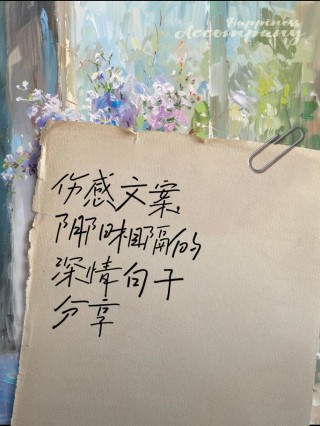 Happiness
Accompany
伤感文案
阴阳相隔的
深情句子
分享